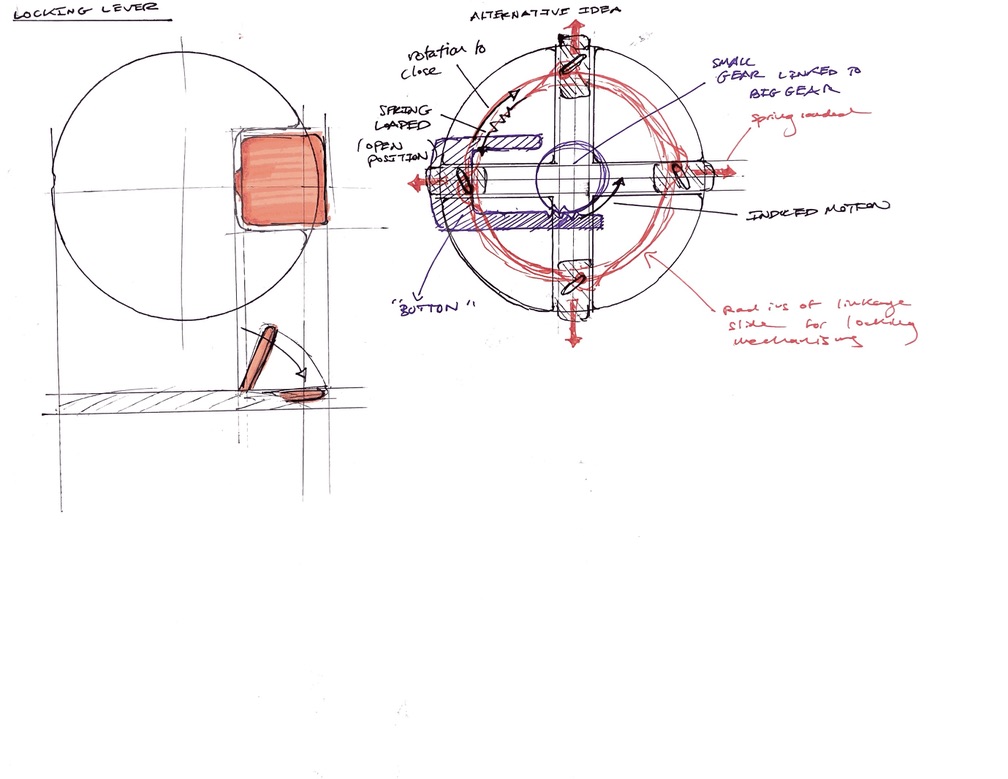 LOCKING LEVER
ALTERNATIVE IDEA
rotation to
close
SPRING
LOADED
(OPEN
POSITION)
SMALL
GEAR LINKED TO
BIG GEAR
spring loaded
INDUCED MOTION
"BUTTON"
Radius of linkage
slide for locking
mechanisms